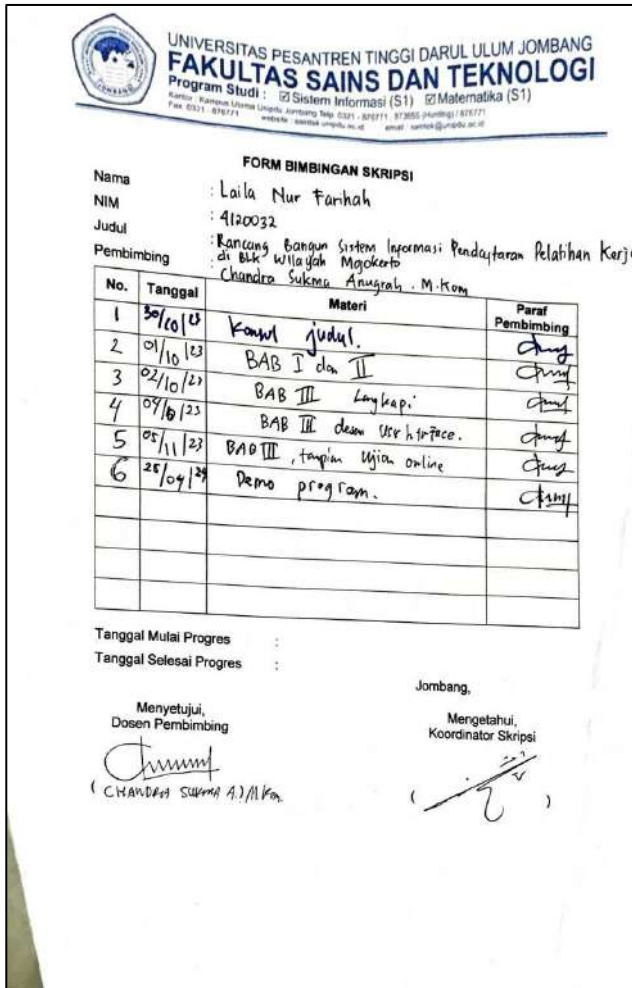 UNIVERSITAS PESANTREN TINGGI DARUL ULUM JOMBANG
FAKULTAS SAINS DAN TEKNOLOGI
Program Studi : ☑ Sistem Informasi (S1) ☑ Matematika (S1)
Kantor : Kampus Utama Unipdu Jombang Telp. 0321 - 876771, 873655 (Hunting) / 876771
Fax. 0321 - 876771 website : saintek.unipdu.ac.id email : saintek@unipdu.ac.id
JOMBANG
FORM BIMBINGAN SKRIPSI
Nama : Laila Nur Farihah
NIM : 4120032
Judul : Rancang Bangun Sistem Informasi Pendaftaran Pelatihan Kerja
di BLK Wilayah Mojokerto
Pembimbing : Chandra Sukma Anugrah . M.Kom
No. Tanggal Materi Paraf Pembimbing
1 30/10/23 Konsul judul.
2 01/10/23 BAB I dan II
3 02/10/23 BAB III Lengkapi
4 BAB III desain
5 05/11/23 BAB III, ujian online
6 25/04/24 Demo program.
Tanggal Mulai Progres :
Tanggal Selesai Progres :
Jombang,
Menyetujui,
Dosen Pembimbing
Mengetahui,
Koordinator Skripsi
( CHANDRA SUKMA A.) M.Kom.
( )